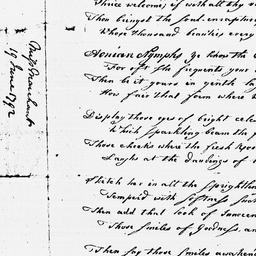 Thrice welcome, if with all thy
Thou bringst the soul-enrapturing
Where thousand beauties every
Aonian Nymphs ye know the
For oft she frequents your
Then be it yours in gentle
How fair that form where
Display those eyes of bright
Which sparkling beam the
Those cheeks where the fresh
Laughs at the dawnings of
Sketch her in all the sprightli
Temper'd with softness
Then add that look of Innocen
Those smiles of Goodness, an
Then say those smiles awaken
Miss Marchant
19 June 1792